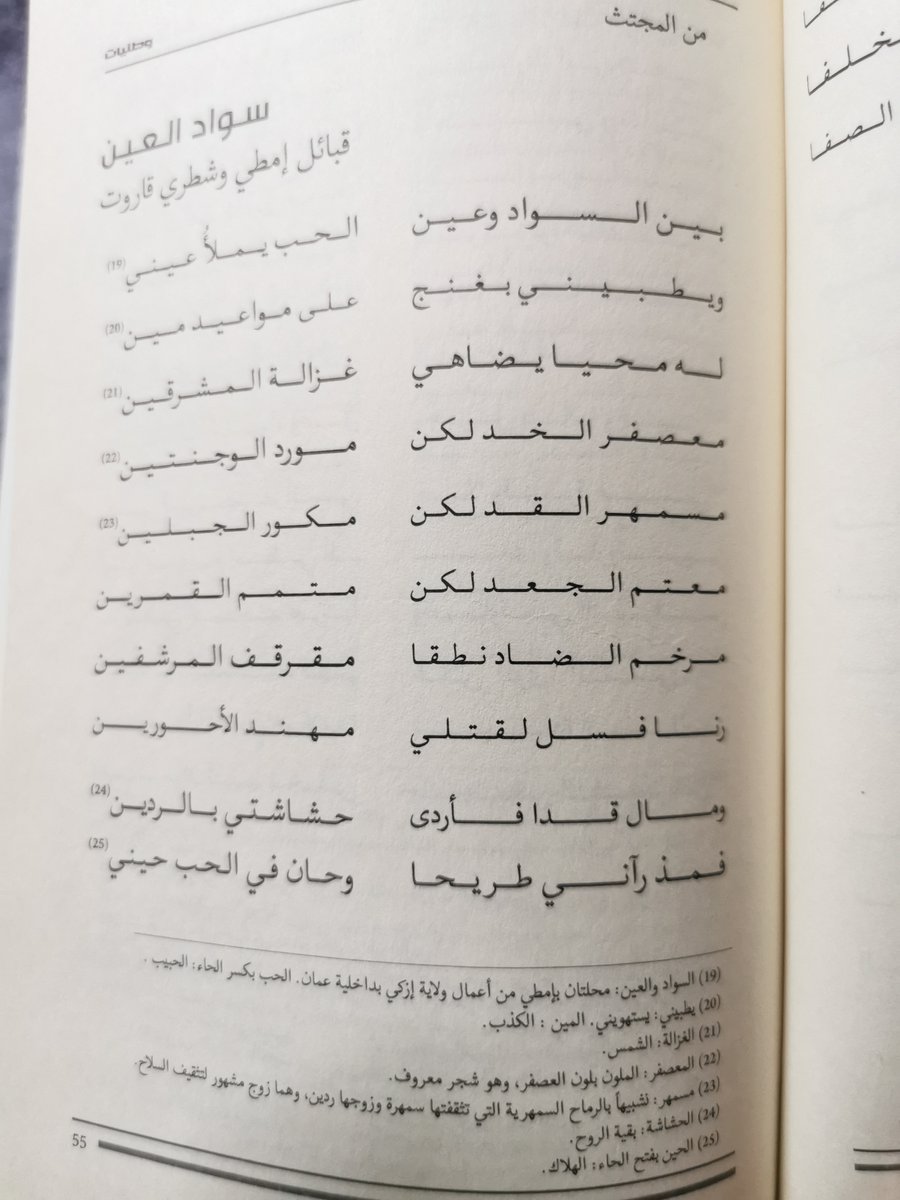 من المجتث
وطنيات
سواد العين
قبائل إمطي وشطري قاروت
بين السواد وعين الحب يملأُ عيني (19)
ويطبيني بغنج على مواعيد مين (20)
له محيا يضاهي غزالة المشرقين (21)
معصفر الخد لكن مورد الوجنتين (22)
مسمهر القد لكن مكور الجبلين (23)
معتم الجعد لكن متمم القمرين
مرخم الضاد نطقا مقرقف المرشفين
رنا فسل لقتلي مهند الأحورين
ومال قدا فأردى حشاشتي بالردين (24)
فمذ رآني طريحا وحان في الحب حيني (25)
(19) السواد والعين: محلتان بإمطي من أعمال ولاية إزكي بداخلية عمان. الحب بكسر الحاء: الحبيب .
(20) يطبيني: يستهويني. المين : الكذب.
(21) الغزالة: الشمس.
(22) المعصفر: الملون بلون العصفر، وهو شجر معروف.
(23) مسمهر: تشبيهاً بالرماح السمهرية التي تثقفتها سمهرة وزوجها ردين، وهما زوج مشهور لتثقيف السلاح.
(24) الحشاشة: بقية الروح.
(25) الحين بفتح الحاء: الهلاك.
55
الصفا